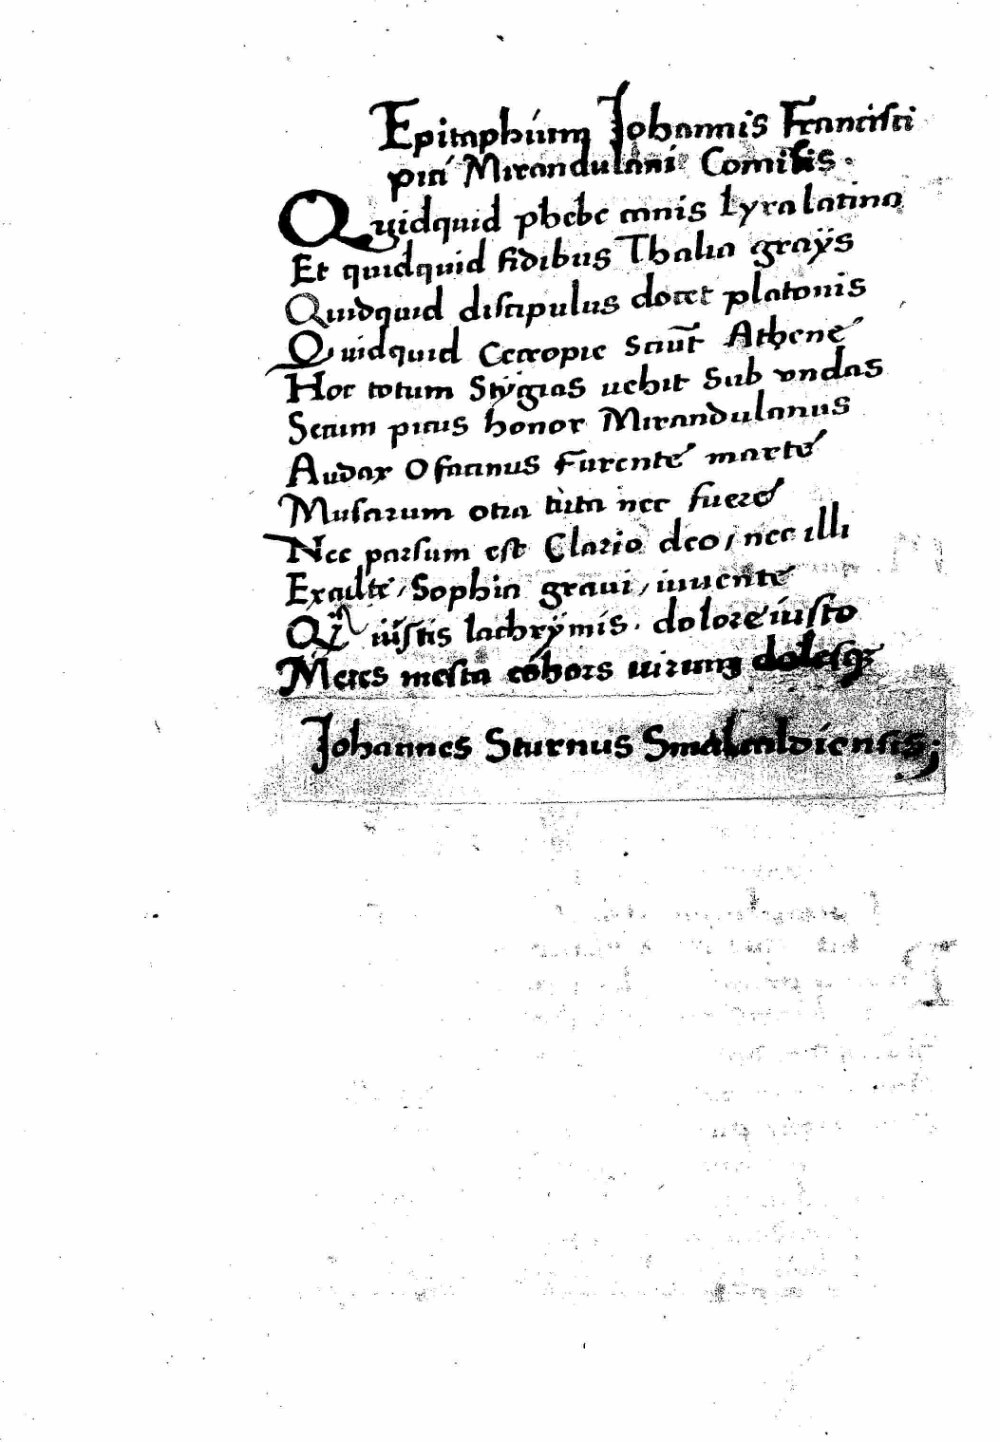 Epitaphium Johannis Francisci
pici Mirandulani Comitis.
Quidquid phebe canis lyra latina
Et quidquid fidibus Thalia grayis
Quidquid discipulus docet platonis
Quidquid Cecropie sciūt Athene
Hoc totum Stygias uehit sub vndas
Secum picus honor Mirandulanus
Audax O facinus furente marte
Musarum otia tuta nec fuere
Nec parsum est Clario deo, nec illi
Exculte, Sophia graui, iuuente
iustis lachrymis. dolore iusto
Meres mesta cohors uirum dolesq3
Johannes Sturnus Smalcaldiensis;